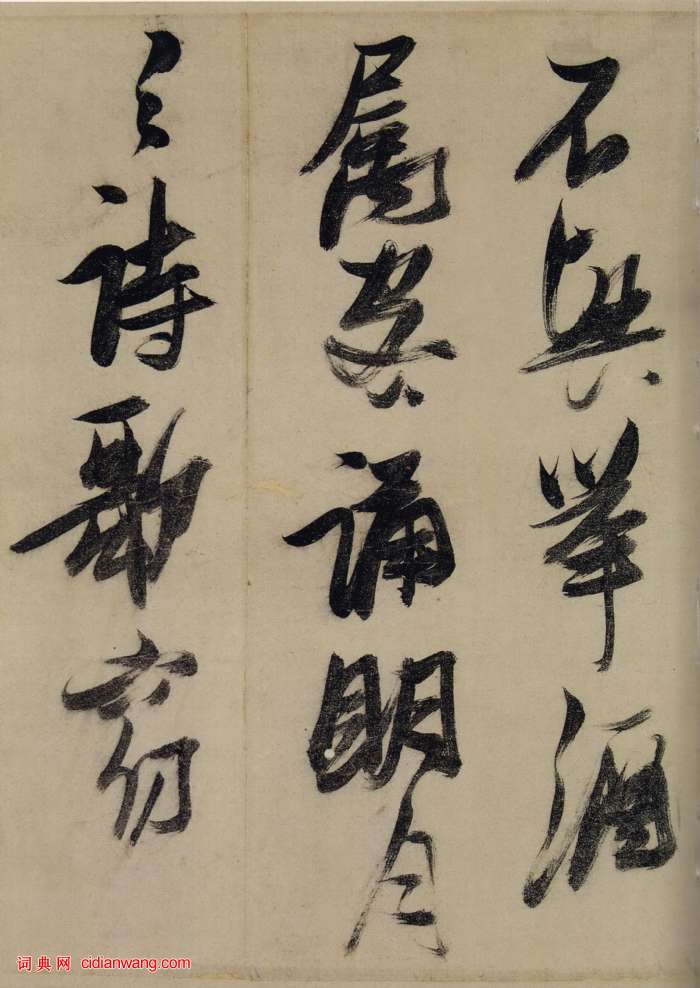 不興舉酒
属客誦明月
之詩歌窈
词典网 cidianwang.com